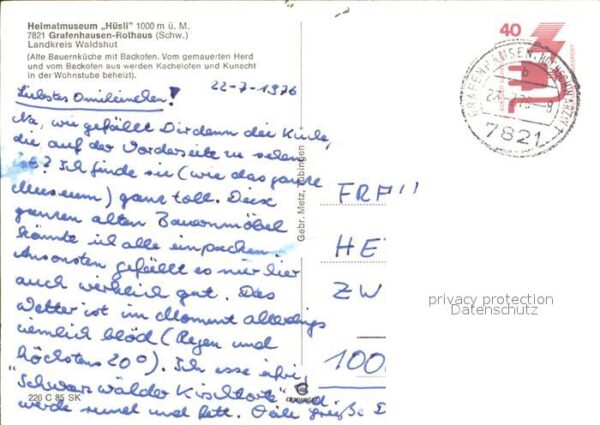 Heimatmuseum „Hüsli" 1000 m ü. M.
7821 Grafenhausen-Rothaus (Schw.)
Landkreis Waldshut
(Alte Bauernküche mit Backofen. Vom gemauerten Herd
und vom Backofen aus werden Kachelofen und Kunscht
in der Wohnstube beheizt).
22-7-1976
Liebstes Omileinchen!
Na, wie gefällt Dir denn die Küche,
die auf der Vorderseite zu sehen
ist? Ich finde sie (wie das ganze
Museum) ganz toll. Diese
ganzen alten Bauernmöbel
könnte ich alle einpacken.
Ansonsten gefällt es mir hier
auch wirklich gut. Das
Wetter ist im Moment allerdings
ziemlich blöd (Regen und
höchstens 20°). Ich esse eifrig
"Schwarzwälder Kirschtorte" und
werde rund und fett. Viele Grüße
226 C 85 SK
Gebr. Metz, Tübingen
40
GRAFENHAUSEN, HOCHSCHWARZW
b
7821
FRA
HE
ZW
100
privacy protection
Datenschutz